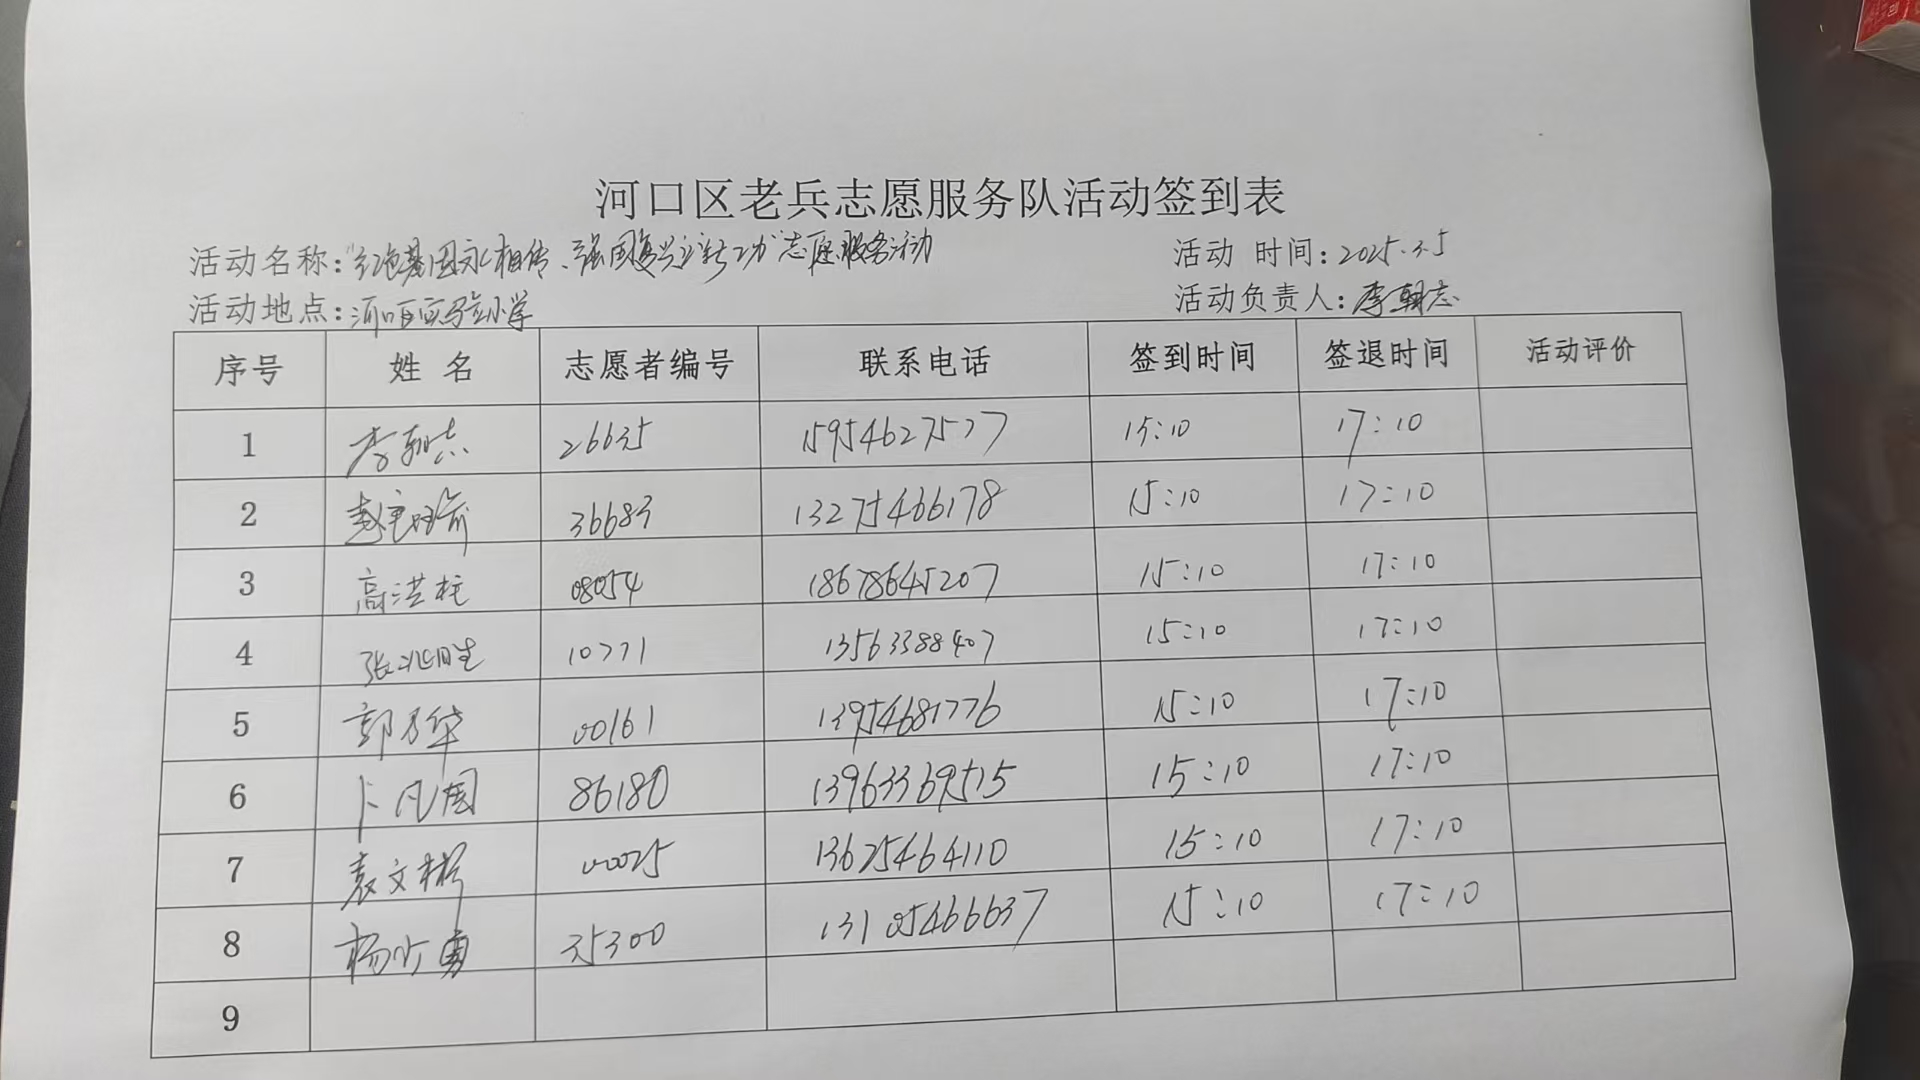 河口区老兵志愿服务队活动签到表
活动名称:“红色基因永相传、强国复兴立新功”志愿服务活动 活动 时间:2025.3.5
活动地点:河口区实验小学 活动负责人:李朝志
序号 姓 名 志愿者编号 联系电话 签到时间 签退时间 活动评价
1 李朝志 26635 15954627577 15:10 17:10
2 36683 13275466178 15:10 17:10
3 高洪柱 08054 18678645207 15:10 17:10
4 张兆胜 10771 13563388407 15:10 17:10
5 郭乃华 00161 13954681776 15:10 17:10
6 卜凡国 86180 13963369515 15:10 17:10
7 袁文彬 00025 13625464110 15:10 17:10
8 杨少勇 35300 13105466637 15:10 17:10
9